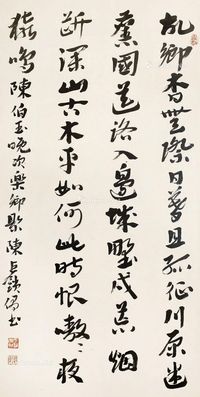 故鄉杳無際日暮且孤征川原迷
舊國道路入邊城野戍荒烟
斷深山古木平如何此時恨噭々夜
猿鳴 陳伯玉晚次樂鄉縣 陳書